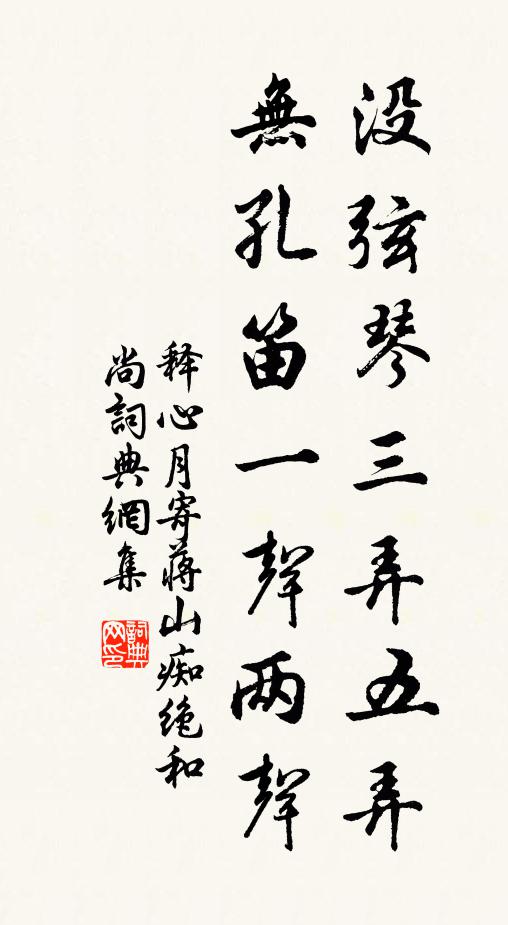 没弦琴三弄五弄
無孔笛一聲两聲
释心月寄蒋山痴绝和
尚詞典網集
詞典网印